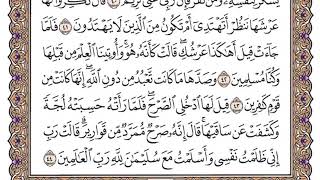 عَرْشَهَا نَنظُرْ أَتَهْتَدِىٓ أَمْ تَكُونُ مِنَ ٱلَّذِينَ لَا يَهْتَدُونَ ٤١ فَلَمَّا
جَآءَتْ قِيلَ أَهَٰكَذَا عَرْشُكِ قَالَتْ كَأَنَّهُۥ هُوَ وَأُوتِينَا ٱلْعِلْمَ مِن قَبْلِهَا
وَكُنَّا مُسْلِمِينَ ٤٢ وَصَدَّهَا مَا كَانَت تَّعْبُدُ مِن دُونِ ٱللَّهِ إِنَّهَا كَانَتْ مِن
قَوْمٍ كَٰفِرِينَ ٤٣ قِيلَ لَهَا ٱدْخُلِى ٱلصَّرْحَ فَلَمَّا رَأَتْهُ حَسِبَتْهُ لُجَّةً
وَكَشَفَتْ عَن سَاقَيْهَا قَالَ إِنَّهُۥ صَرْحٌ مُّمَرَّدٌ مِّن قَوَارِيرَ قَالَتْ رَبِّ
إِنِّى ظَلَمْتُ نَفْسِى وَأَسْلَمْتُ مَعَ سُلَيْمَٰنَ لِلَّهِ رَبِّ ٱلْعَٰلَمِينَ ٤٤